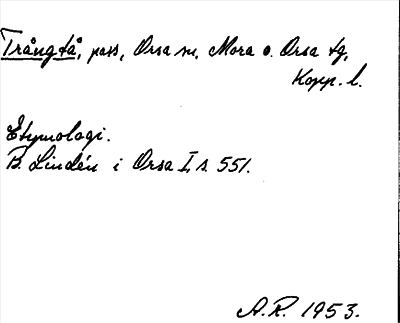 Trångtå, pass, Orsa sn, Mora o. Orsa tg,
Kopp. l.
Etymologi.
B. Lindén i Orsa I, s. 551.
A.R. 1953.